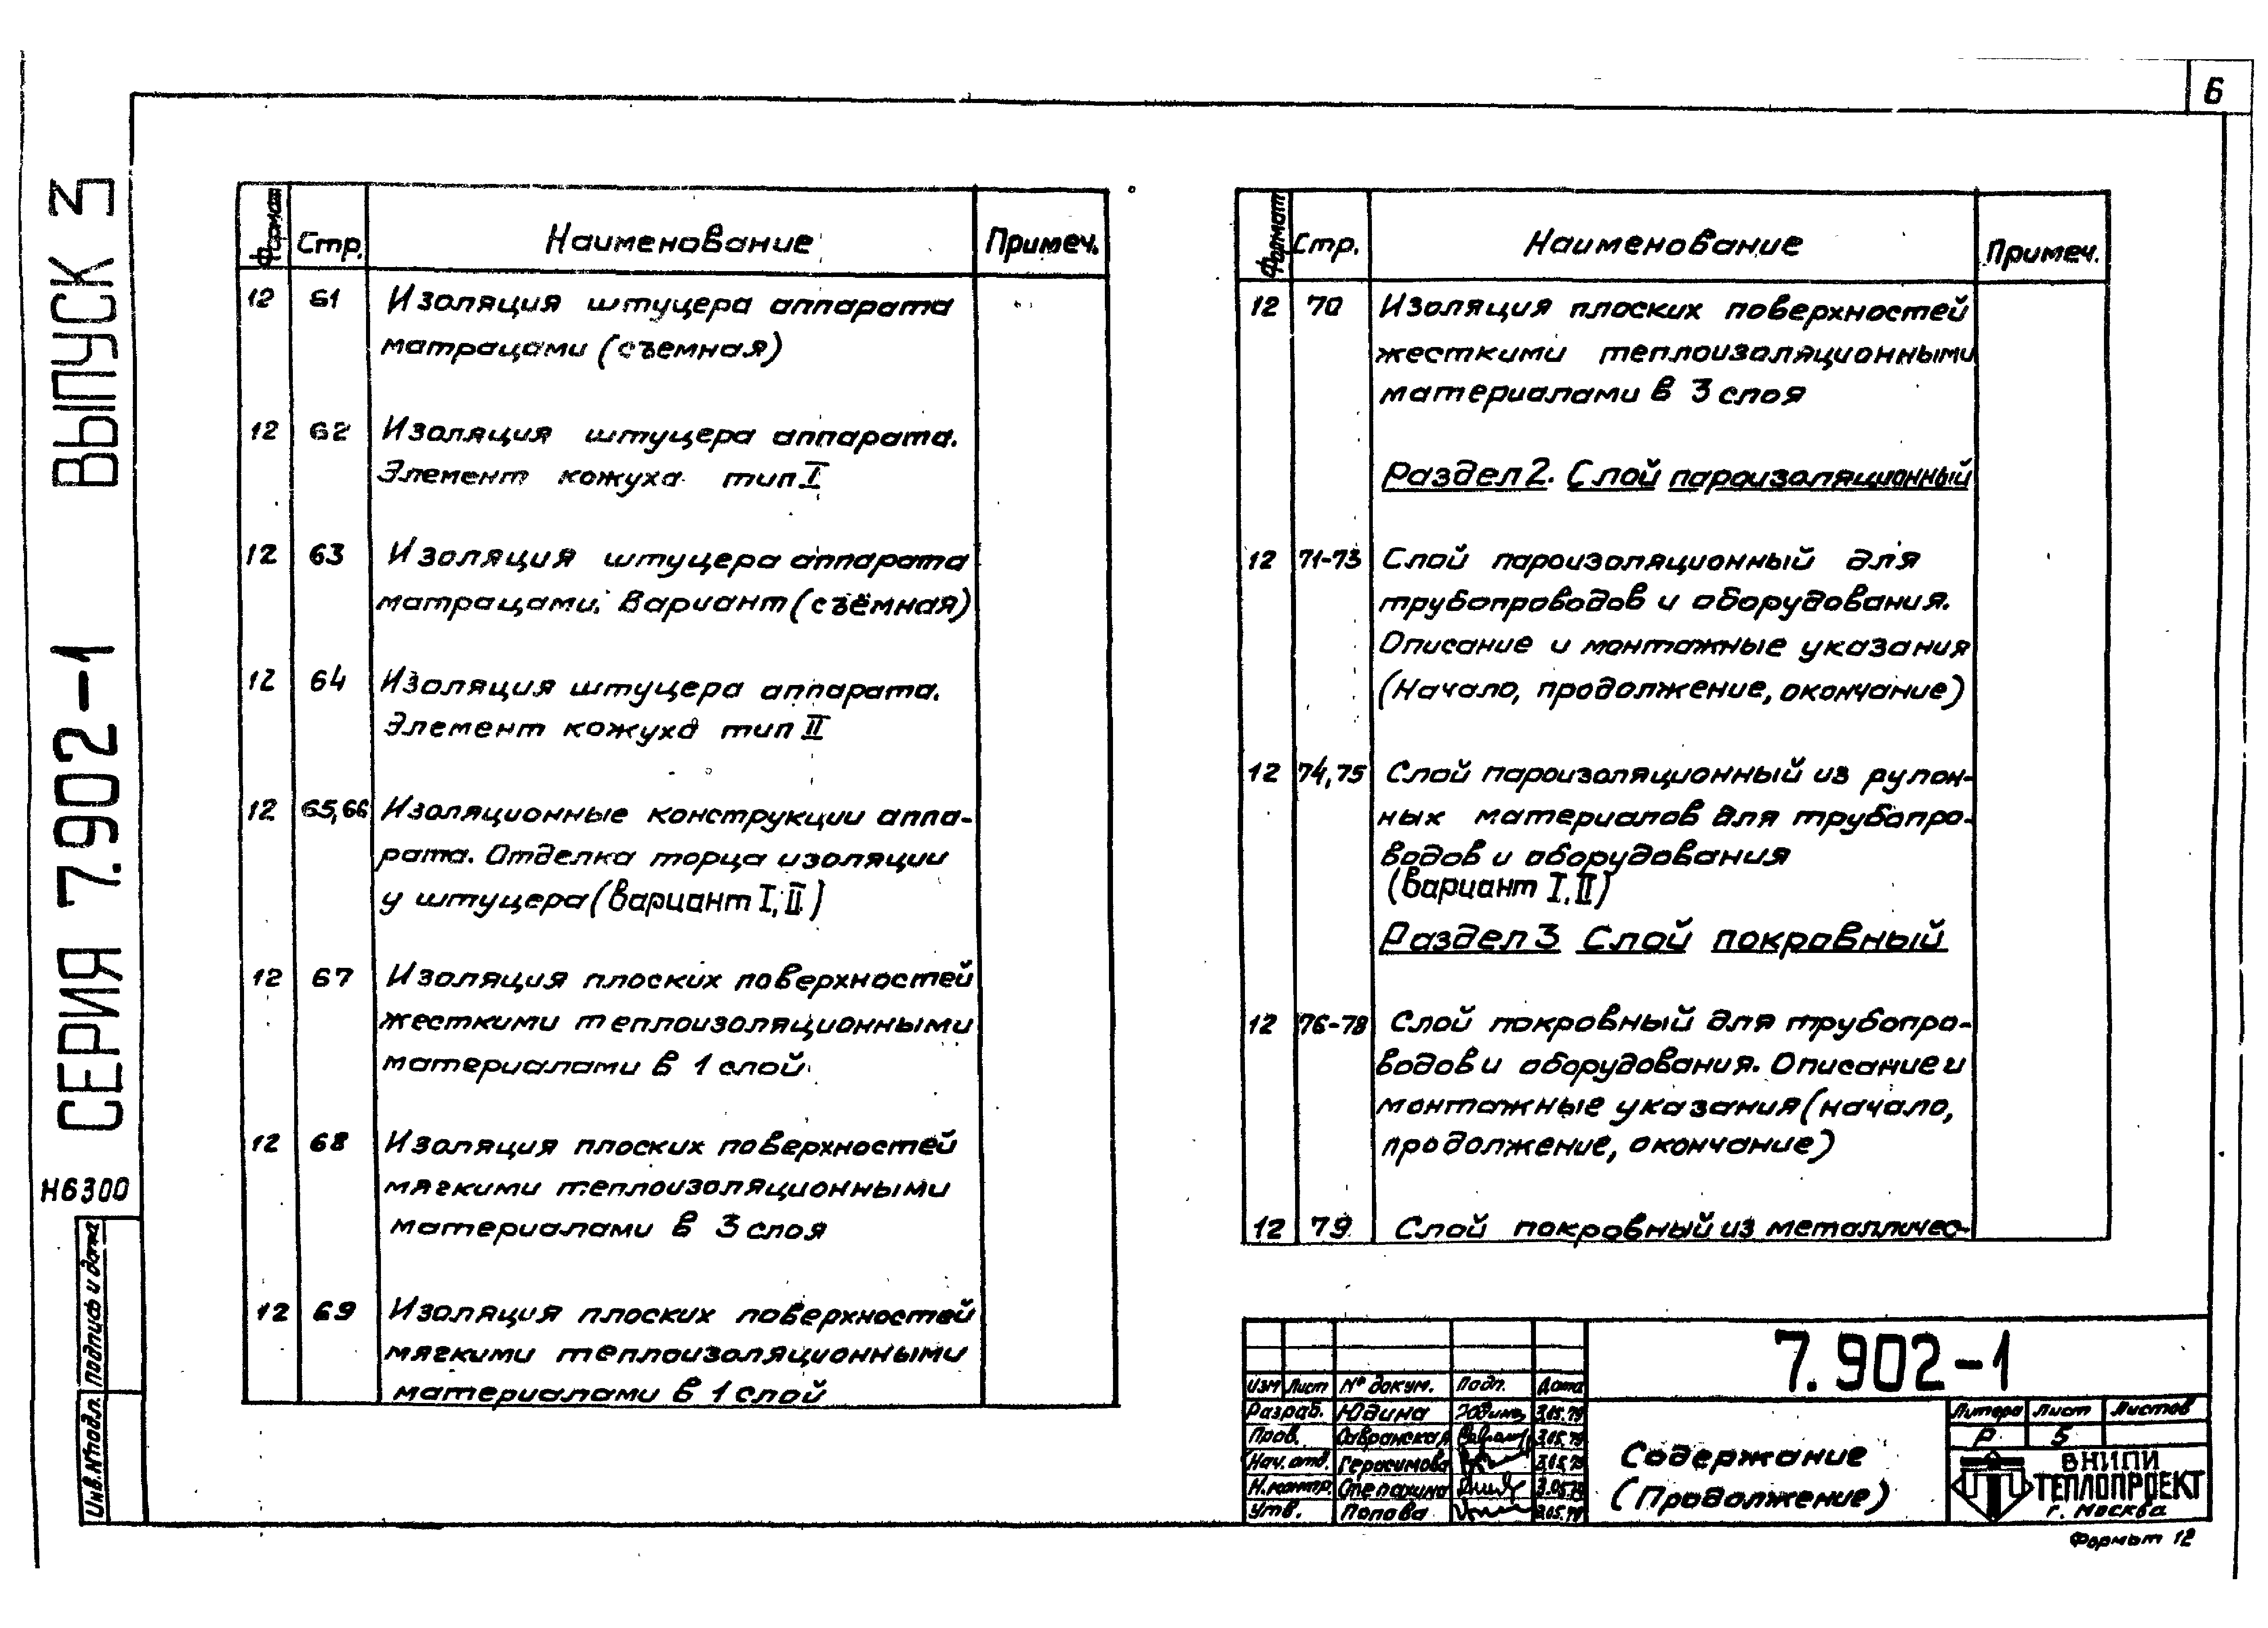 6
СЕРИЯ 7.902-1 ВЫПУСК 3
Н6300
Подпись и дата
Инв.№подл.
Формат Стр. Наименование Примеч.
12 61 Изоляция штуцера аппарата
матрацами (съемная)
12 62 Изоляция штуцера аппарата.
Элемент кожуха тип I
12 63 Изоляция штуцера аппарата
матрацами. Вариант (съёмная)
12 64 Изоляция штуцера аппарата.
Элемент кожуха тип II
12 65,66 Изоляционные конструкции аппа-
рата. Отделка торца изоляции
у штуцера (вариант I, II)
12 67 Изоляция плоских поверхностей
жесткими теплоизоляционными
материалами в 1 слой
12 68 Изоляция плоских поверхностей
мягкими теплоизоляционными
материалами в 3 слоя
12 69 Изоляция плоских поверхностей
мягкими теплоизоляционными
материалами в 1 слой
Формат Стр. Наименование Примеч.
12 70 Изоляция плоских поверхностей
жесткими теплоизоляционными
материалами в 3 слоя
Раздел 2. Слой пароизоляционный
12 71-73 Слой пароизоляционный для
трубопроводов и оборудования.
Описание и монтажные указания
(Начало, продолжение, окончание)
12 74,75 Слой пароизоляционный из рулон-
ных материалов для трубопро-
водов и оборудования
(вариант I, II)
Раздел 3 Слой покровный
12 76-78 Слой покровный для трубопро-
водов и оборудования. Описание и
монтажные указания (начало,
продолжение, окончание)
12 79 Слой покровный из металличес-
7.902-1
Изм Лист № докум. Подп. Дата
Разраб. Юдина Юдина 3.05.79
Пров. Савранская 3.05.79
Нач. отд. Герасимова 3.05.79
Н.контр. Степанина 3.05.79
Утв. Попова 3.05.79
Содержание
(Продолжение)
Литера Лист Листов
Р 5
ВНИПИ
ТЕПЛОПРОЕКТ
г. Москва
Формат 12